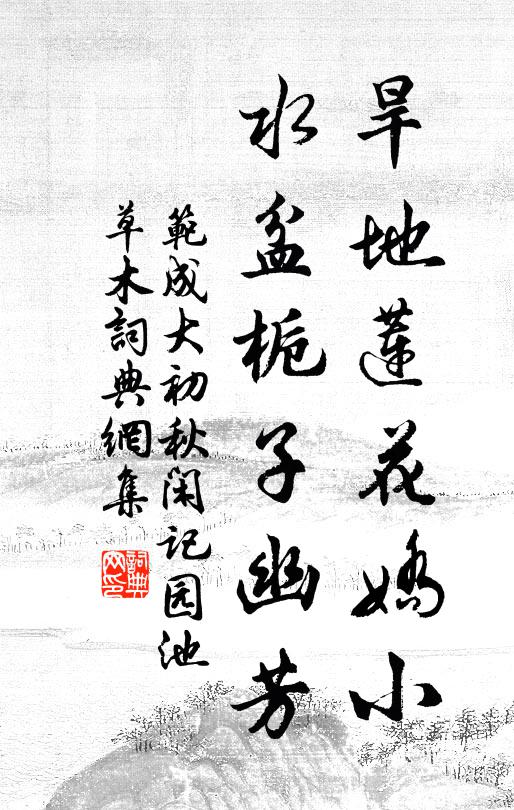 旱地蓮花嬌小
水盆栀子幽芳
範成大初秋閑记园池
草木詞典網集
詞典网印